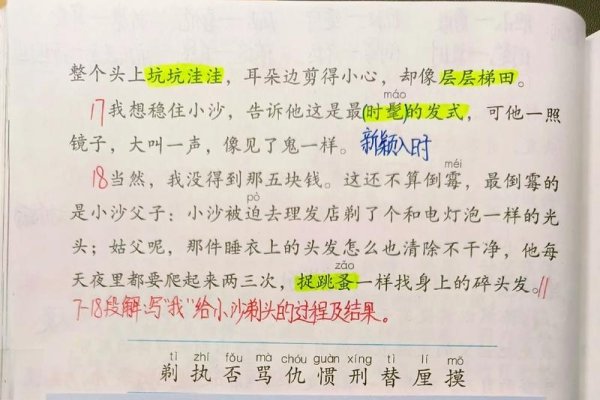 整个头上坑坑洼洼，耳朵边剪得小心，却像层层梯田。
máo
17我想稳住小沙，告诉他这是最(时髦)的发式，可他一照
镜子，大叫一声，像见了鬼一样。 新颖入时
méi
18当然，我没得到那五块钱。这还不算倒霉，最倒霉的
pò
是小沙父子：小沙被迫去理发店剃了个和电灯泡一样的光
头；姑父呢，那件睡衣上的头发怎么也清除不干净，他每
zǎo
天夜里都要爬起来两三次，捉跳蚤一样找身上的碎头发。||
7-18段解:写"我"给小沙剃头的过程及结果。
tì zhí fǒu mà chóu guàn xíng tì lí mō
剃 执 否 骂 仇 惯 刑 替 厘 摸